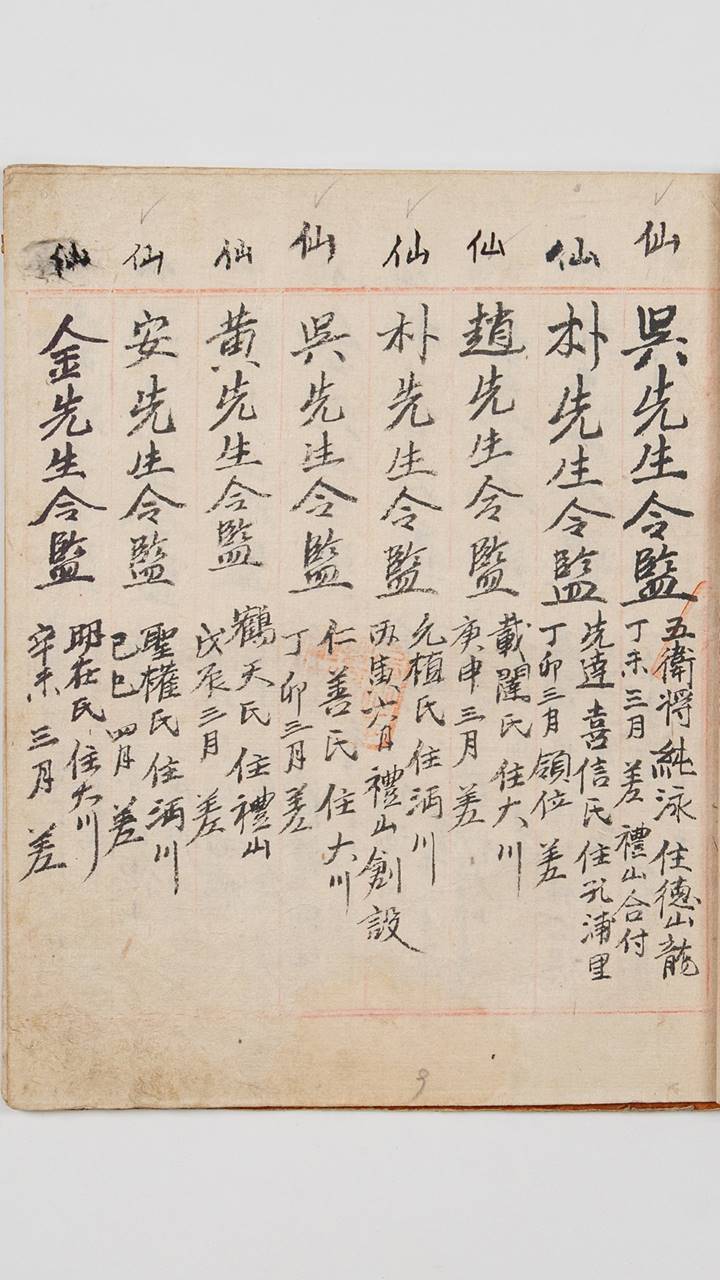 仙
吳先生令監
五衛將純泳 住德山龍
丁未三月 差 禮山合付
仙
朴先生令監
先達喜信氏 住孔浦里
丁卯三月 領位 差
仙
趙先生令監
載闓氏 住大川
庚申三月 差
仙
朴先生令監
元植氏 住沔川
丙寅六月 禮山創設
仙
吳先生令監
仁善氏 住大川
丁卯三月 差
仙
黃先生令監
鶴天氏 住禮山
戊辰三月 差
仙
安先生令監
聖權氏 住沔川
己巳四月 差
仙
金先生令監
明在氏 住大川
辛未三月 差
9